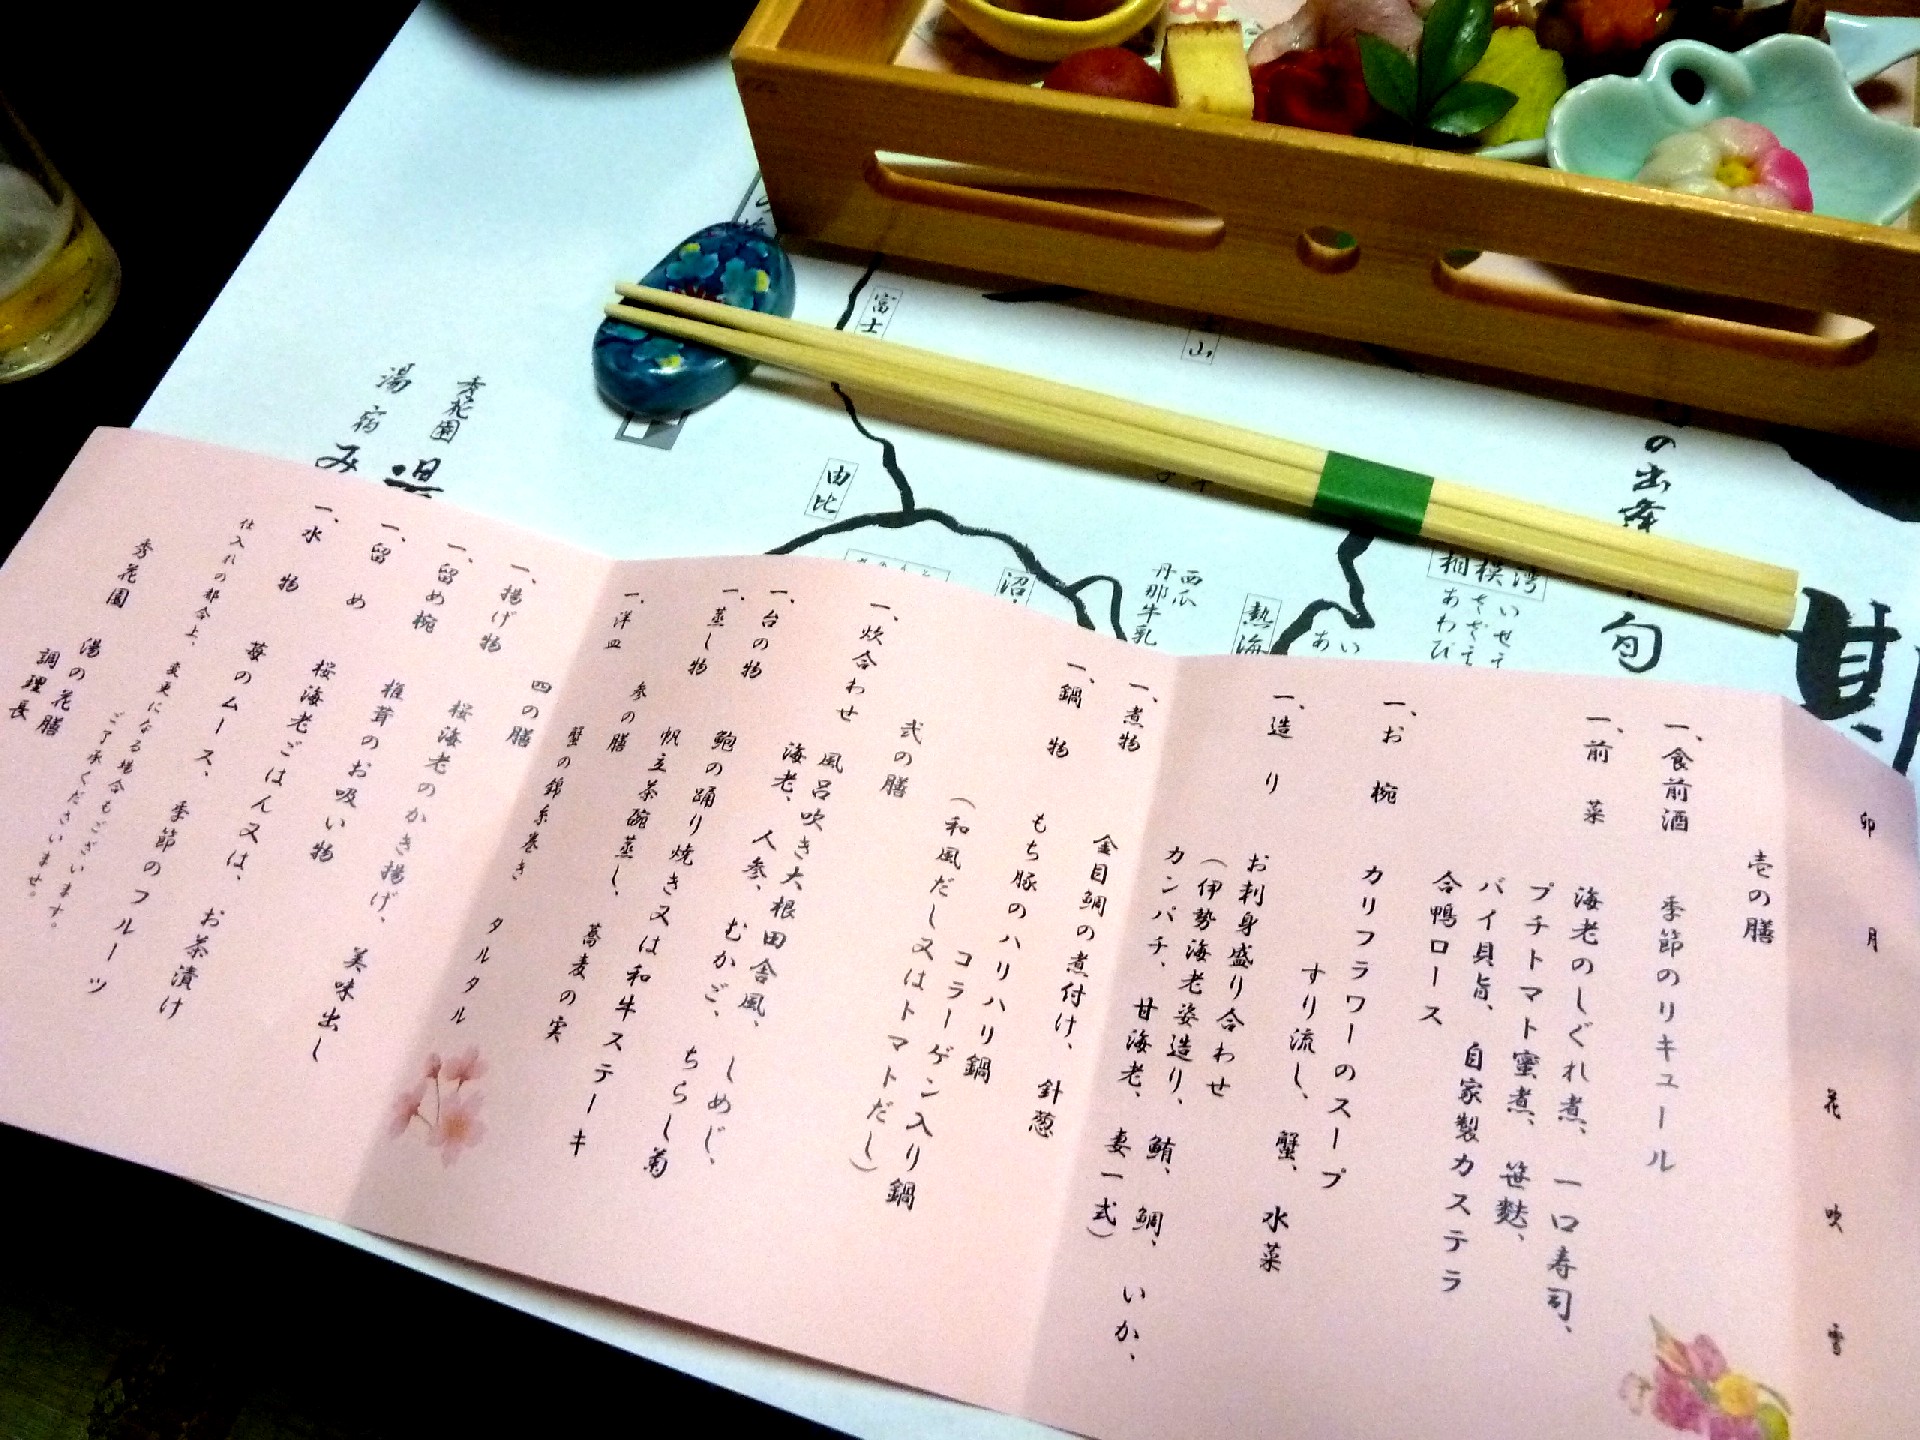 卯月 花吹雪
壱の膳
一、食前酒 季節のリキュール
一、前菜 海老のしぐれ煮、一口寿司、
プチトマト蜜煮、笹麩、
バイ貝旨、自家製カステラ
合鴨ロース
一、お椀 カリフラワーのスープ
すり流し、蟹、水菜
一、造り お刺身盛り合わせ
(伊勢海老姿造り、鮪、鯛、いか、
カンパチ、甘海老、妻一式)
一、煮物 金目鯛の煮付け、針葱
一、鍋物 もち豚のハリハリ鍋
コラーゲン入り鍋
(和風だし又はトマトだし)
弐の膳
一、炊合わせ 風呂吹き大根田舎風、しめじ、
海老、人参、むかご、ちらし菊
一、台の物 鮑の踊り焼き又は和牛ステーキ
一、蒸し物 帆立茶碗蒸し、蕎麦の実
参の膳
一、洋皿 蟹の錦糸巻き タルタル
四の膳
一、揚げ物 桜海老のかき揚げ、美味出し
一、留め椀 椎茸のお吸い物
一、留め 桜海老ごはん又は、お茶漬け
一、水物 苺のムース、季節のフルーツ
仕入れの都合上、変更になる場合もございます。
ご了承くださいませ。
秀花園 湯の花膳
調理長
秀花園
湯宿
み
富士
山
由比
沼
西瓜
丹那牛乳
熱海
あい
相模湾
いせえ
さざえ
あわび
の出
旬